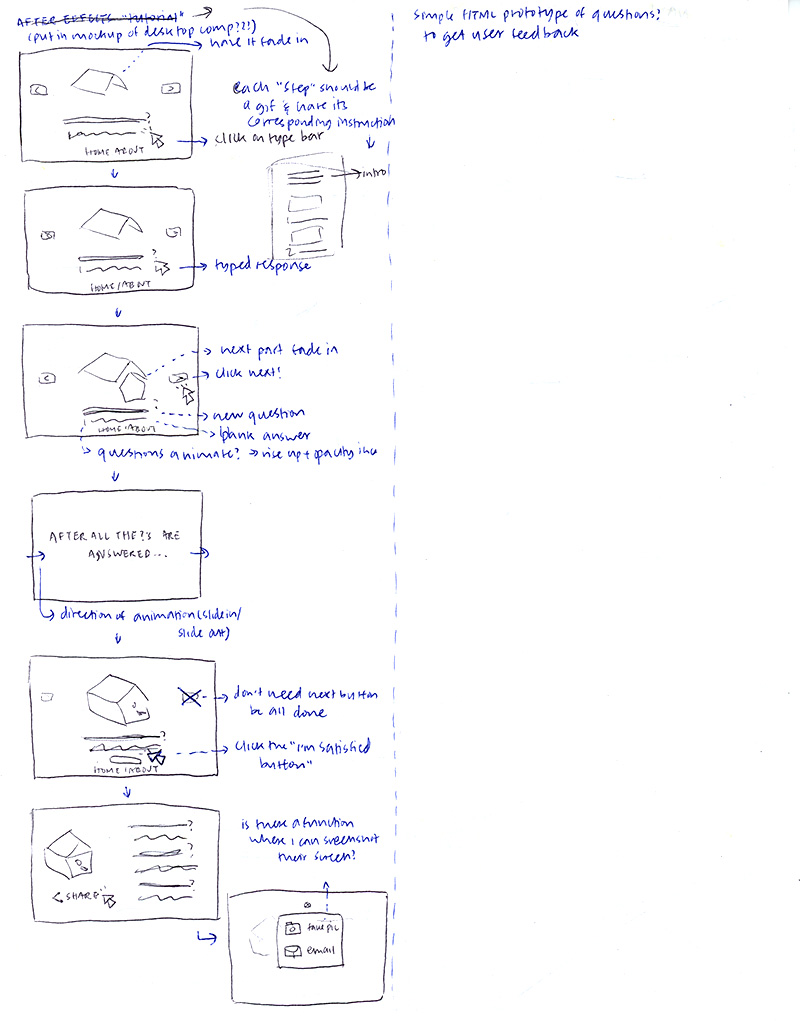 AFTER EFFECTS "tutorial"
(put in mockup of desktop comp??!)
have it fade in
each "step" should be
a gif & have its
corresponding instruction
click on type bar
HOME ABOUT
intro
?
typed response
HOME/ABOUT
next part fade in
click next!
new question
blank answer
HOME/ABOUT
questions animate? → rise up + opacity inc
AFTER ALL THE ?'s ARE
ANSWERED...
direction of animation (slide in/
slide out)
don't need next button
bc all done
?
click the "I'm satisfied
button"
HOME/ABOUT
is there a function
where I can screenshot
their screen?
?
?
?
SHARE
take pic
email
simple HTML prototype of questions?
to get user feedback